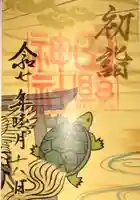 初詣
神社
令和七年睦月十六日